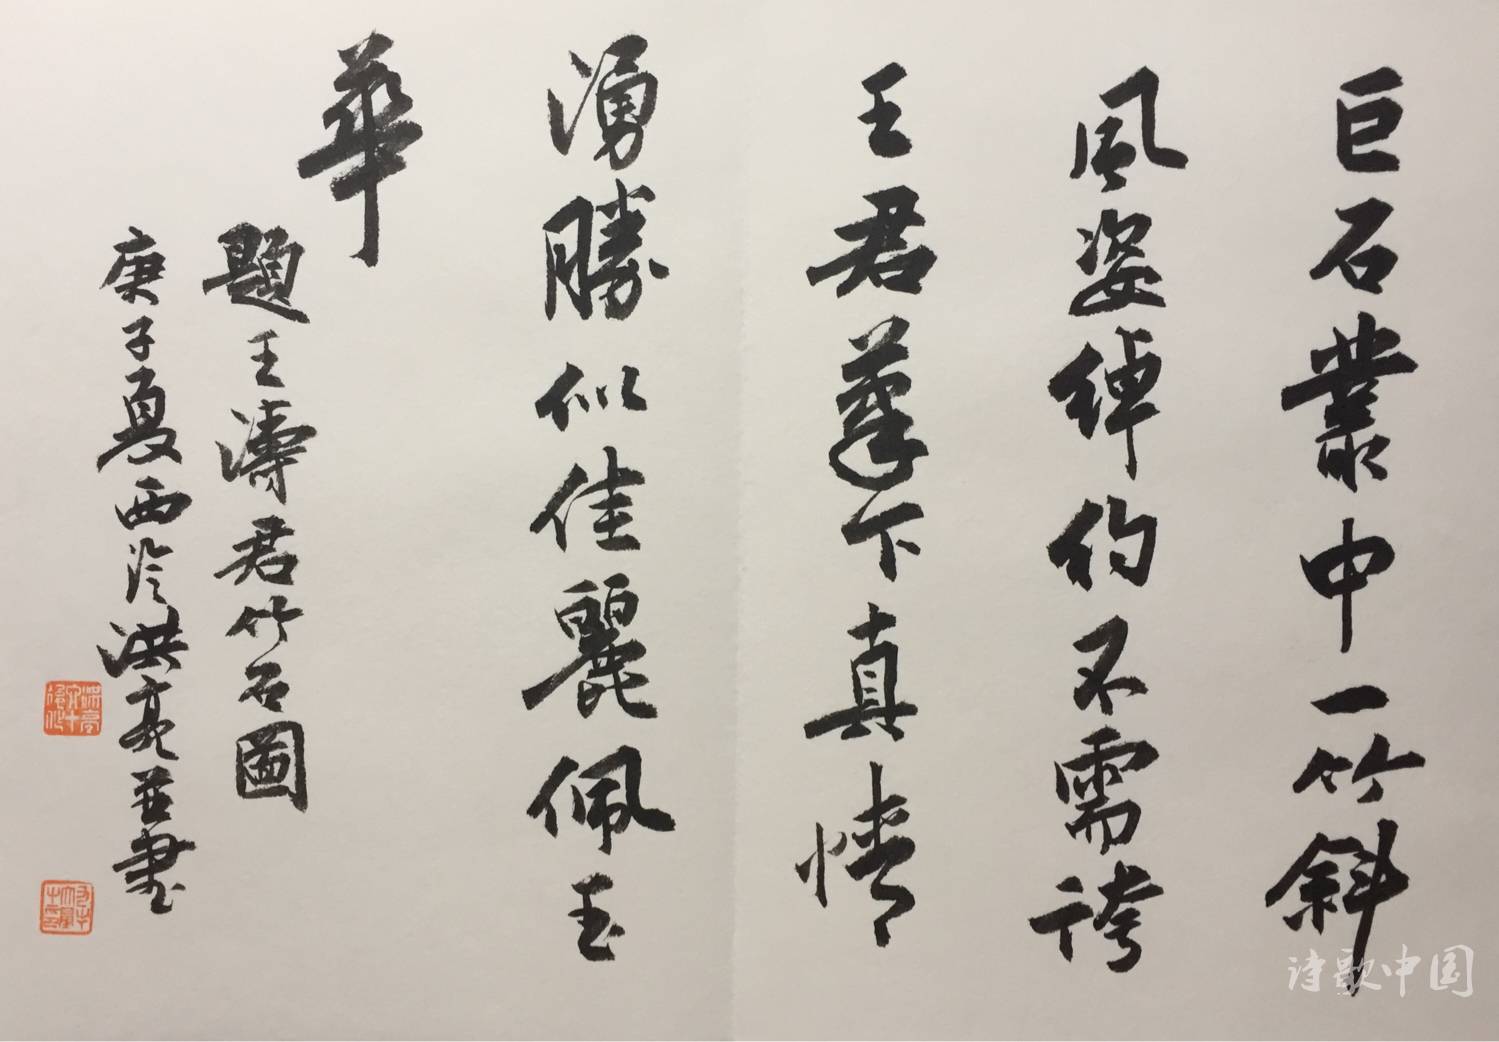 巨石叢中一竹斜
風姿綽約不需誇
王君筆下真情
湧勝似佳麗佩玉
華
題王濤君竹石圖
庚子夏西泠洪亮並書
诗歌中国